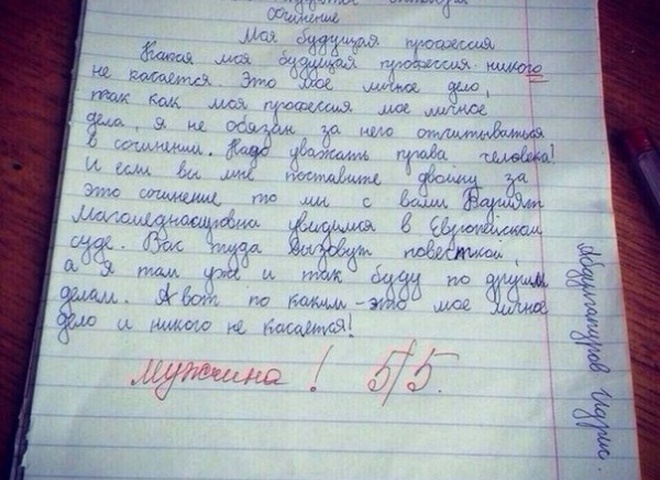 сочинение
Моя будущая профессия
Какая моя будущая профессия никого
не касается. Это мое личное дело,
так как моя профессия мое личное
дела, я не обязан за него отчитываться
в сочинении. Надо уважать права человека!
И если вы мне поставите двойку за
это сочинение то мы с вами Барият
Магомеднасировна увидимся в Европейском
суде. Вас туда вызовут повесткой,
а я там уже и так буду по другим
делам. А вот по каким - это мое личное
дело и никого не касается!
Мужчина! 5/5.
Абдулгапуров Идрис.